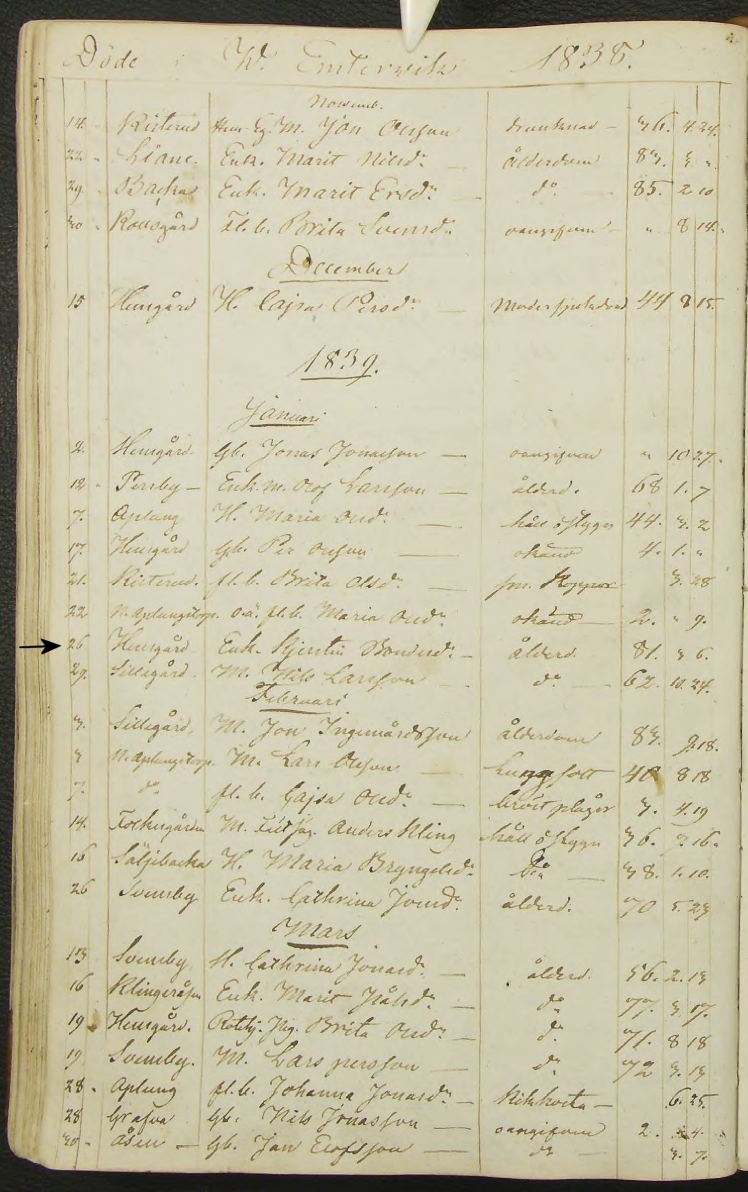 Döde W. Emtervik 1838.
Novemb.
14. Risterud M. Jon Olsson drunknad 36. 4. 24.
22 Liane. Enk. Marit Nilsd:r ålderdom 83. 3
29 Backa Enk. Marit Ersd:r d:o 85. 2 10
30 fl. b. Brita Svensd:r oangifven " 8 14.
December
15 Hemgård H. Cajsa Persd:r 44 8 15.
1839.
Januari
2. Hemgård. gb. Jonas Jonasson oangifven " 10 27.
12 Persby Enk. m. Olof Larsson ålderd. 68 1. 7
7. Aplung H. Maria Olsd:r håll o stygn 44. 3. 2
17. Hemgård gb. Per Olsson okänd 4. 1. "
21. Risterud. fl. b. Brita Olsd:r Koppor 3. 28
22 N. Aplungstorp. o.ä. fl. b. Maria Olsd:r okänd 2. " 9.
26 Hemgård Enk. Kjerstin ålderd. 81. 3 6.
29. Sillegård. M. Nils Larsson d:o 62. 10. 24.
Februari.
3. Sillegård. M. Jon Ingemårdsson ålderdom 83. 9. 18.
3 N. Aplungstorp. M. Lars Olsson Lungsott 40 8 18
7. d:o fl. b. Cajsa Olsd:r bröstplågor 3. 4. 19
14. M. Anders Kling håll o stygn 36. 16.
16 Säljebacka H. Maria Bryngelsd:r d:o 38. 1. 10.
26 Svensby Enk. Cathrina Jonsd:r ålderd. 70 5. 23
Mars
13 Svensby H. Cathrina Jonasd:r ålderd. 56. 2. 13
16 Klingeråsen Enk. Marit Pålsd:r d:o 77. 3. 17.
19 Hemgård. Brita Olsd:r d:o 71. 8 18
19 Svensby. M. Lars persson d:o 72 3. 13
28 Aplung fl. b. Johanna Jonasd:r Kikhosta 6. 25.
28 Gräfva gb. Nils Jonasson oangifven 2. 4.
30 Åsen gb. Jan Elofsson d:o 3. 7.